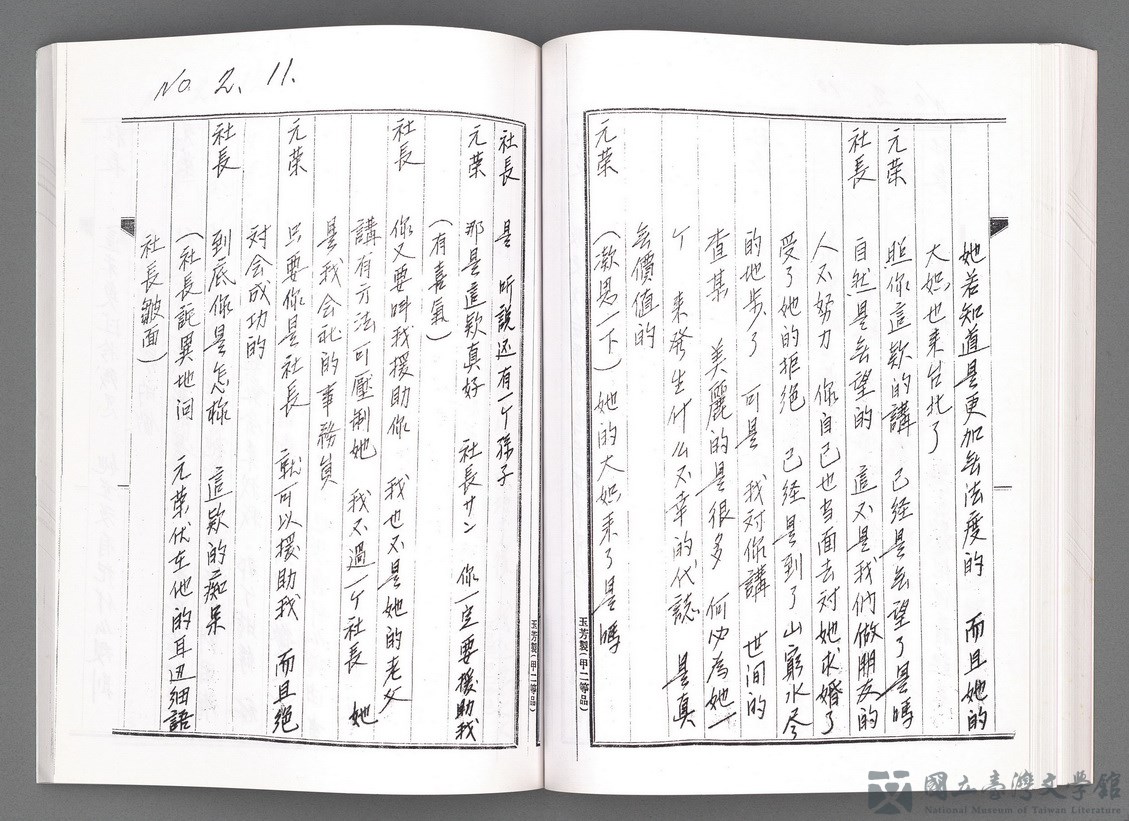 她若知道是更加無法度的　而且她的
大姊也来台北了
元荣　照你這欵的講　已经是無望了是嗎
社長　自然是無望的　這不是我们做朋友的
人不努力　你自己也当面去对她求婚了
受了她的拒绝　已经是到了山窮水尽
的地步了　可是　我对你講　世间的
查某　美麗的是很多　何必為她一
个　来發生什么不幸的代誌　是真
無價值的
元荣　（漱思一下）她的大姊来了是嗎
玉芳製（甲二等品）
No. 2. 11.
社長　是　听説还有一个孫子
元荣　那是這欵真好　社長サン　你一定要援助我
（有喜氣）
社長　你又要叫我援助你　我也不是她的老父
講有方法可壓制她　我不過一个社長　她
是我会社的事務員
元荣　只要你是社長　就可以援助我　而且绝
対会成功的
社長　到底你是怎樣　這欵的痴呆
（社長詫異地问　元荣伏在他的耳边细語
社長皺面）
玉芳製（甲二等品）
國立臺灣文學館
National Museum of Taiwan Literature